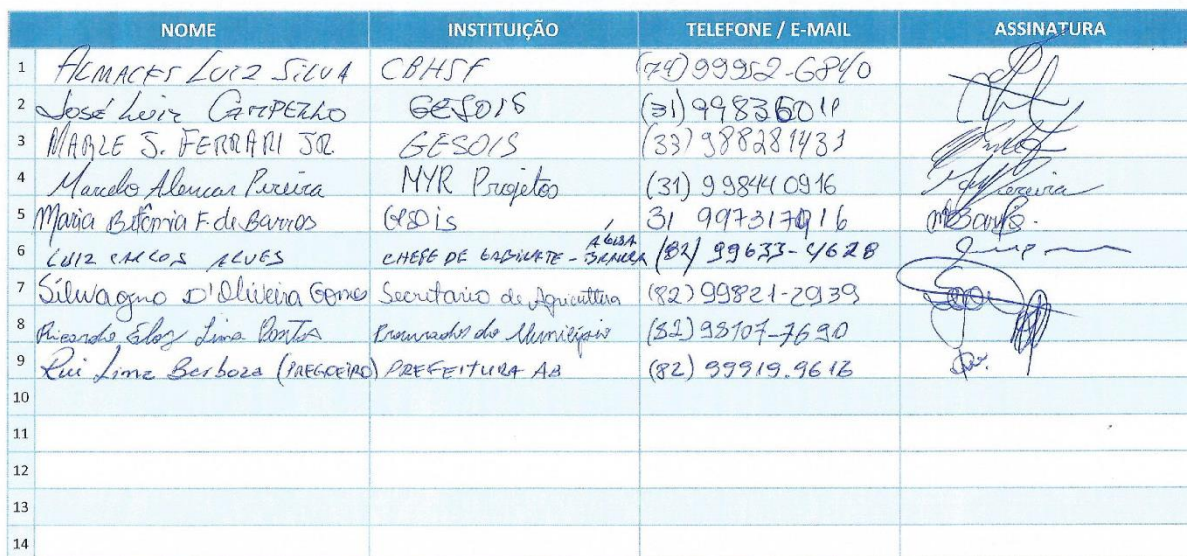 NOME INSTITUIÇÃO TELEFONE / E-MAIL ASSINATURA
1 ALMACKS LUIZ SILVA CBHSF (74) 99952-6840
2 José Luiz CAMPELLO GESOIS (31) 99836011
3 MARLE S. FERRARI JR GESOIS (33) 988281431
4 Marcelo Alencar Pereira MYR Projetos (31) 998440916
5 Maria Betânia F. de Barros GESOIS 31 997317916
6 LUIZ CARLOS ALVES CHEFE DE GABINETE - ÁGUA BRANCA (82) 99633-4628
7 Silvagno D'Oliveira Gomes Secretario de Agricultura (82) 99821-2939
8 Ricardo Eloy Lima Procurador do Município (82) 98107-7690
9 Rui Lima Barboza (PREGOEIRO) PREFEITURA AB (82) 99919.9616
10
11
12
13
14